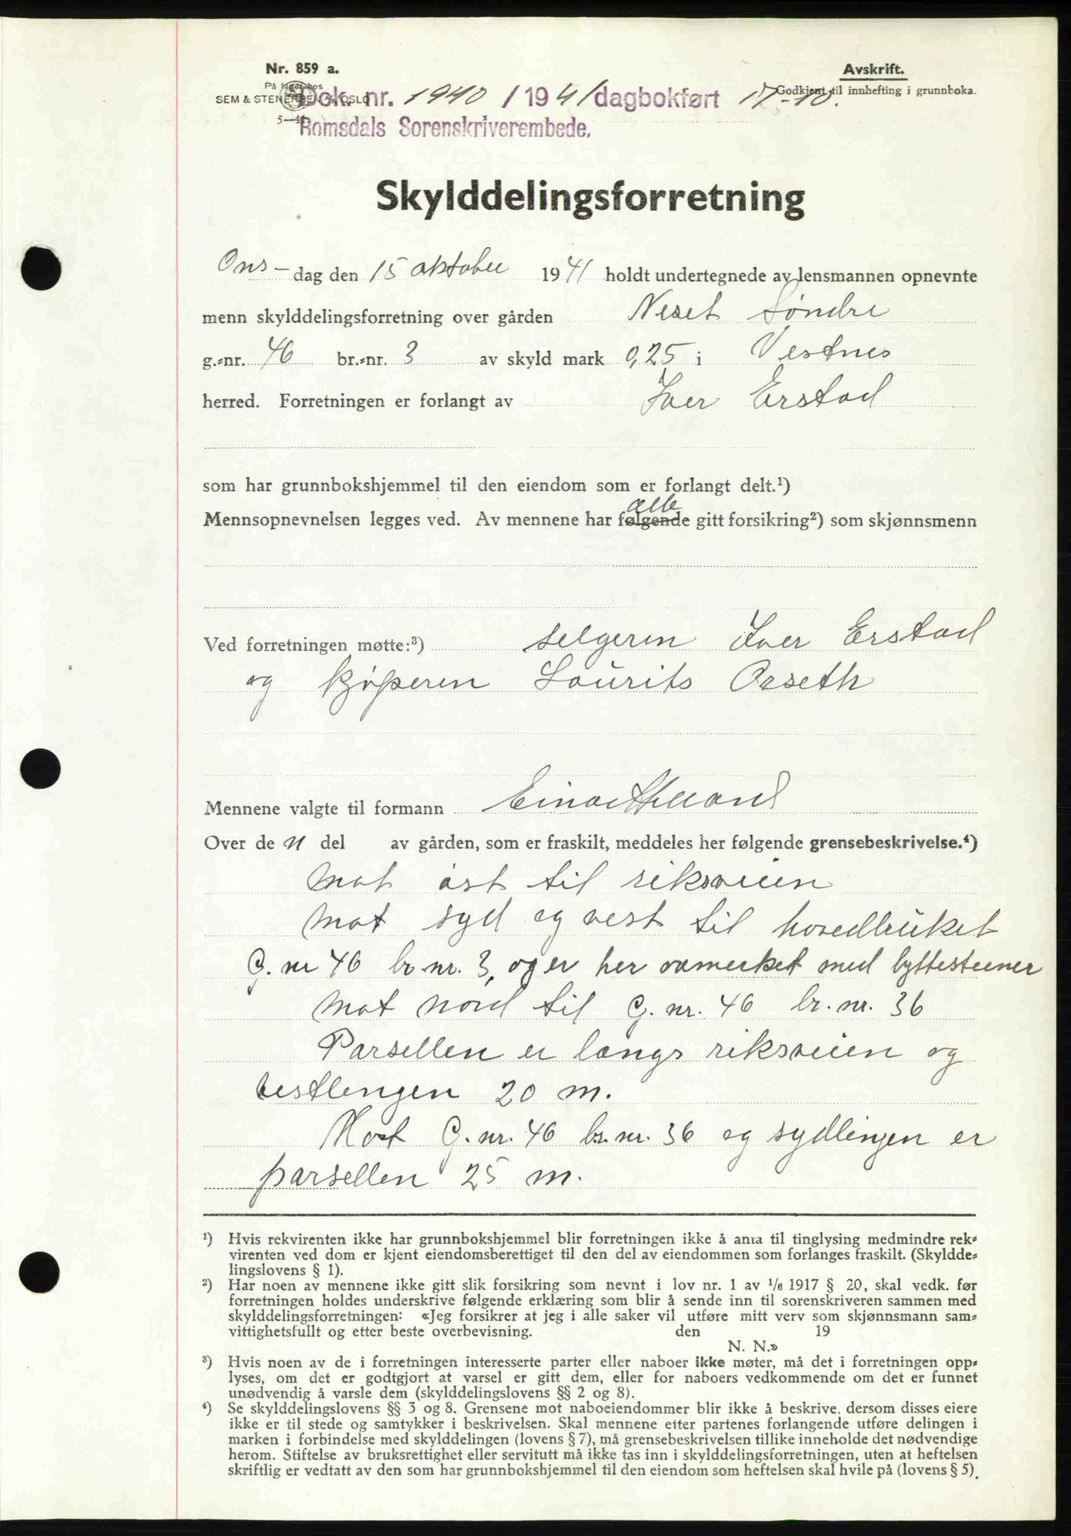 Nr. 859 a.
Avskrift.
På lager hos
SEM & STENERSEN A/S OSLO
Godkjent til innhefting i grunnboka.
Dok. nr. 1940 / 1941 dagbokført 17-10.
5—41
Romsdals Sorenskriverembede.
Skylddelingsforretning
Ons-dag den 15 oktober 1941 holdt undertegnede av lensmannen opnevnte
menn skylddelingsforretning over gården Neset Søndre
g.-nr. 46 br.-nr. 3 av skyld mark 0,25 i Vestnes
herred. Forretningen er forlangt av Iver Erstad
som har grunnbokshjemmel til den eiendom som er forlangt delt.¹)
alle
Mennsopnevnelsen legges ved. Av mennene har følgende gitt forsikring²) som skjønnsmenn
Ved forretningen møtte:³) selgeren Iver Erstad
og kjøperen Laurits Aaseth
Mennene valgte til formann Einar Helland
Over de n del av gården, som er fraskilt, meddeles her følgende grensebeskrivelse.⁴)
Mot øst til riksveien
Mot syd og vest til hovedbruket
G. nr 46 br. nr. 3, og er her avmerket med byttesteiner
Mot Nord til G. nr. 46 br. nr. 36
Parsellen er langs riksveien og
vestlengen 20 m.
Mot G. nr. 46 br. nr. 36 og sydlengen er
parsellen 25 m.
¹) Hvis rekvirenten ikke har grunnbokshjemmel blir forretningen ikke å anta til tinglysing medmindre rek-
virenten ved dom er kjent eiendomsberettiget til den del av eiendommen som forlanges fraskilt. (Skyldde-
lingslovens § 1).
²) Har noen av mennene ikke gitt slik forsikring som nevnt i lov nr. 1 av ¹/6 1917 § 20, skal vedk. før
forretningen holdes underskrive følgende erklæring som blir å sende inn til sorenskriveren sammen med
skylddelingsforretningen: «Jeg forsikrer at jeg i alle saker vil utføre mitt verv som skjønnsmann sam-
vittighetsfullt og etter beste overbevisning. den 19
N. N.»
³) Hvis noen av de i forretningen interesserte parter eller naboer ikke møter, må det i forretningen opp-
lyses, om det er godtgjort at varsel er gitt dem, eller for naboers vedkommende om det er funnet
unødvendig å varsle dem (skylddelingslovens §§ 2 og 8).
⁴) Se skylddelingslovens §§ 3 og 8. Grensene mot naboeiendommer blir ikke å beskrive, dersom disses eiere
ikke er til stede og samtykker i beskrivelsen. Skal mennene etter partenes forlangende utføre delingen i
marken i forbindelse med skylddelingen (lovens § 7), må grensebeskrivelsen tillike inneholde det nødvendige
herom. Stiftelse av bruksrettighet eller servitutt må ikke tas inn i skylddelingsforretningen, uten at heftelsen
skriftlig er vedtatt av den som har grunnbokshjemmel til den eiendom som heftelsen skal hvile på (lovens § 5).